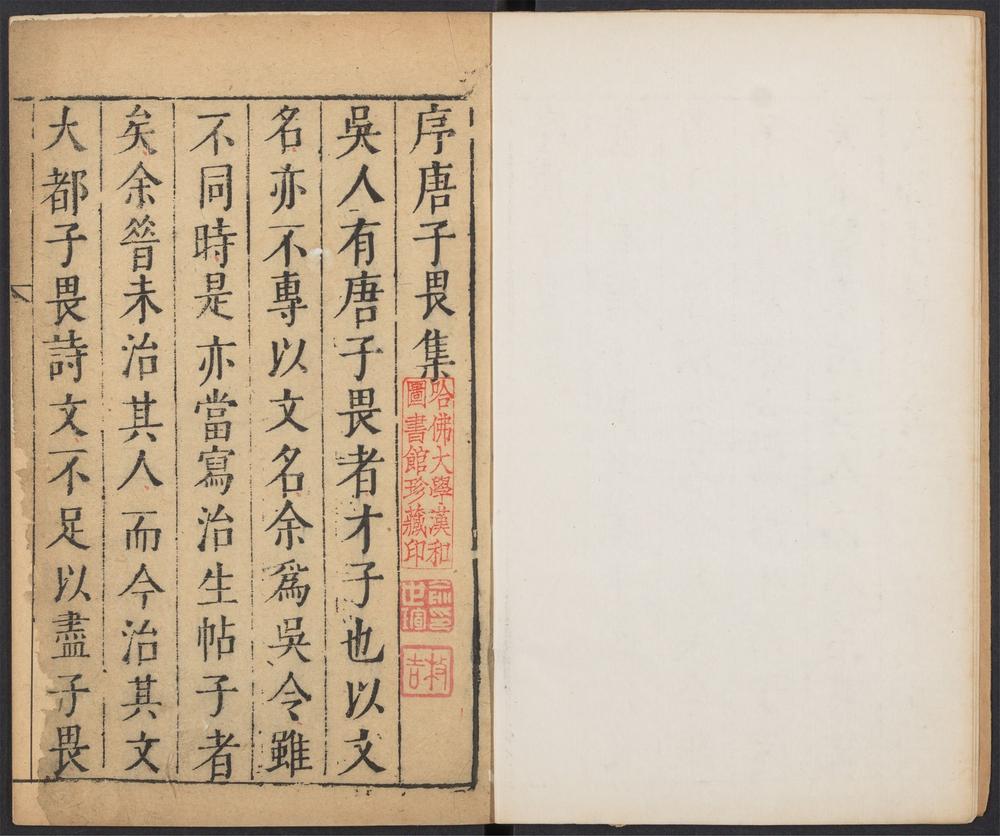 序唐子畏集
吳人有唐子畏者才子也以文
名亦不專以文名余爲吳令雖
不同時是亦當寫治生帖子者
矣余昝未治其人而今治其文
大都子畏詩文不足以盡子畏
哈佛大學漢和
圖書館珍藏印